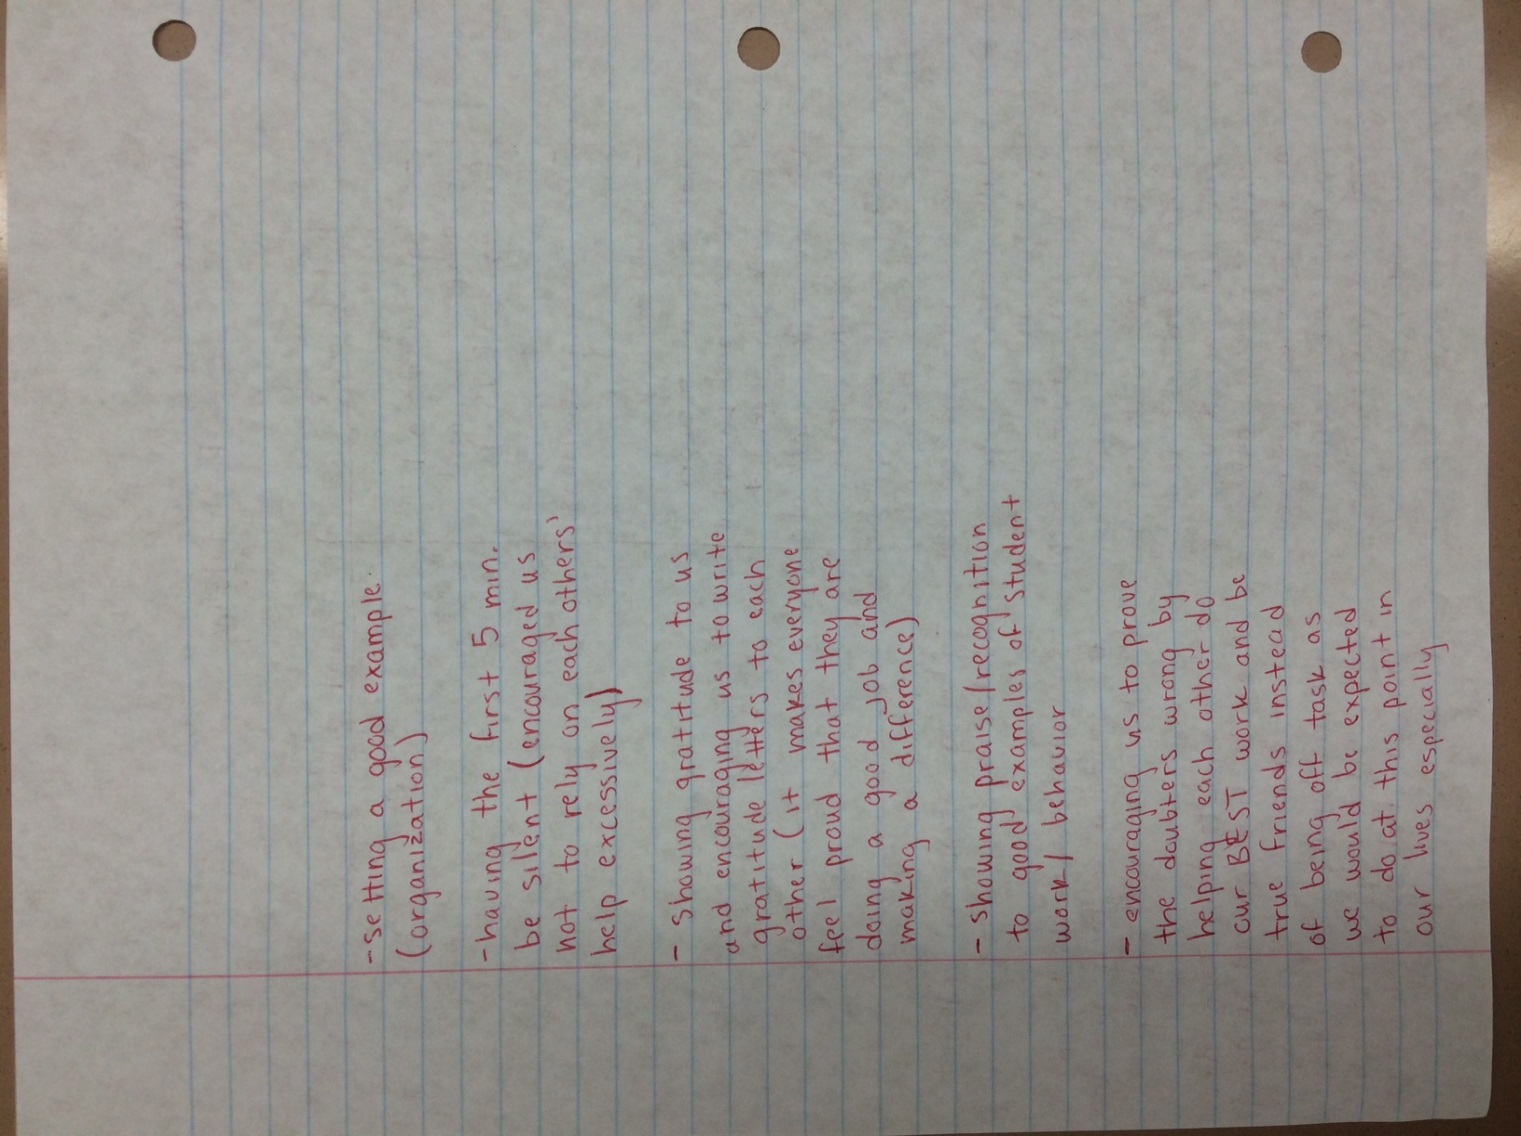 - setting a good example
(organization)
- having the first 5 min.
be silent (encouraged us
not to rely on each others'
help excessively)
- showing gratitude to us
and encouraging us to write
gratitude letters to each
other (it makes everyone
feel proud that they are
doing a good job and
making a difference)
- showing praise/recognition
to good examples of student
work/behavior
- encouraging us to prove
the doubters wrong by
helping each other do
our BEST work and be
true friends instead
of being off task as
we would be expected
to do at this point in
our lives especially